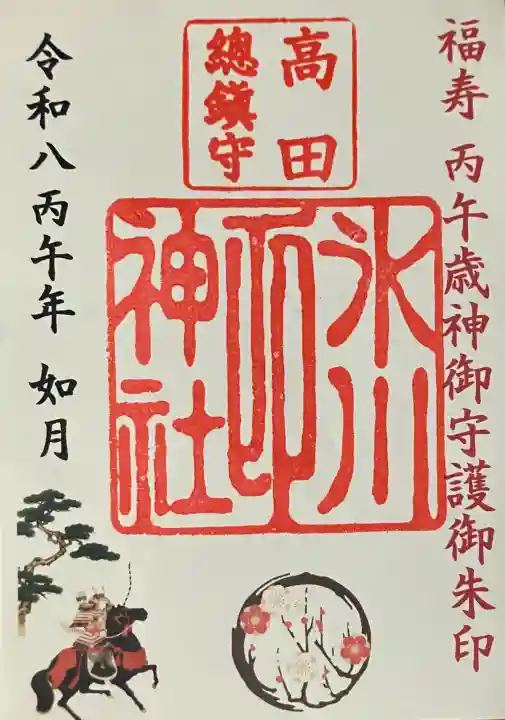 福寿 丙午歳神御守護御朱印
高田
總鎮守
氷川
神社
印
令和八丙午年 如月